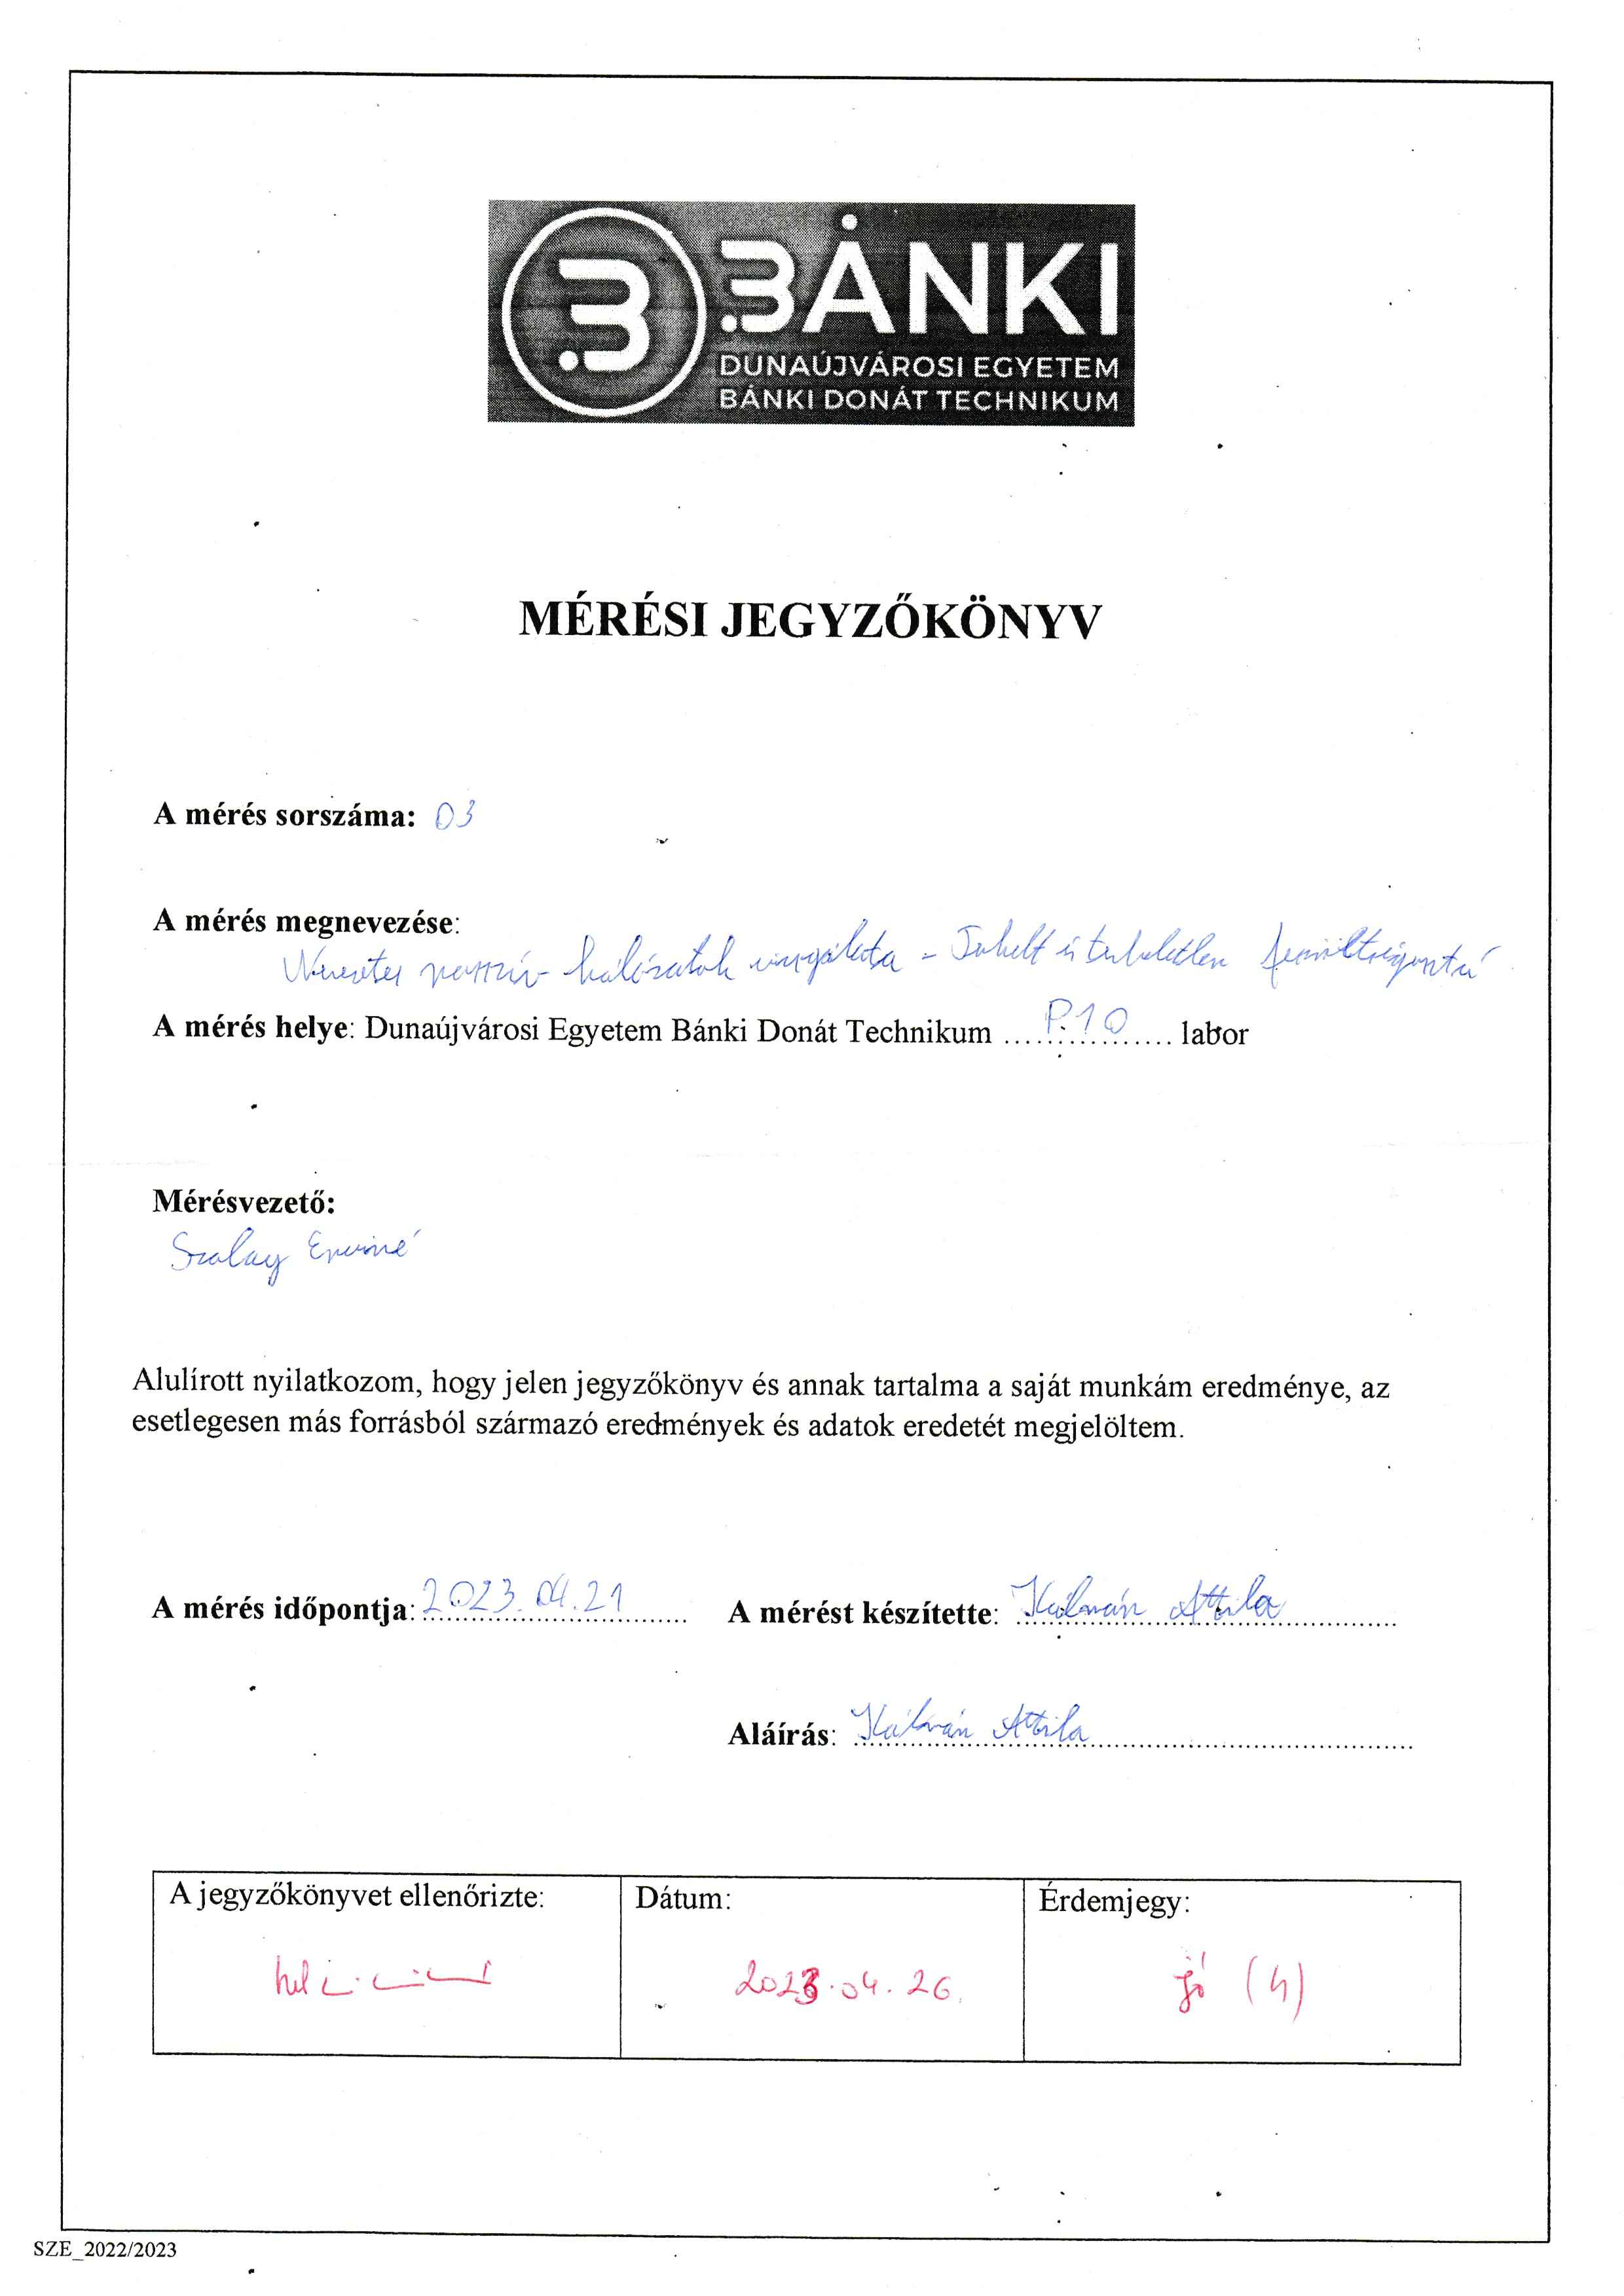 BÁNKI
DUNAÚJVÁROSI EGYETEM
BÁNKI DONÁT TECHNIKUM
MÉRÉSI JEGYZŐKÖNYV
A mérés sorszáma: 03
A mérés megnevezése:
Nevezetes passzív hálózatok vizsgálata - Terhelt és terheletlen feszültségosztó
A mérés helye: Dunaújvárosi Egyetem Bánki Donát Technikum P.10 labor
Mérésvezető:
Szalay Ervinné
Alulírott nyilatkozom, hogy jelen jegyzőkönyv és annak tartalma a saját munkám eredménye, az
esetlegesen más forrásból származó eredmények és adatok eredetét megjelöltem.
A mérés időpontja: 2023.04.21 A mérést készítette: Kálmán Attila
Aláírás: Kálmán Attila
A jegyzőkönyvet ellenőrizte: Dátum: Érdemjegy:
2023.04.26. jó (4)
SZE_2022/2023